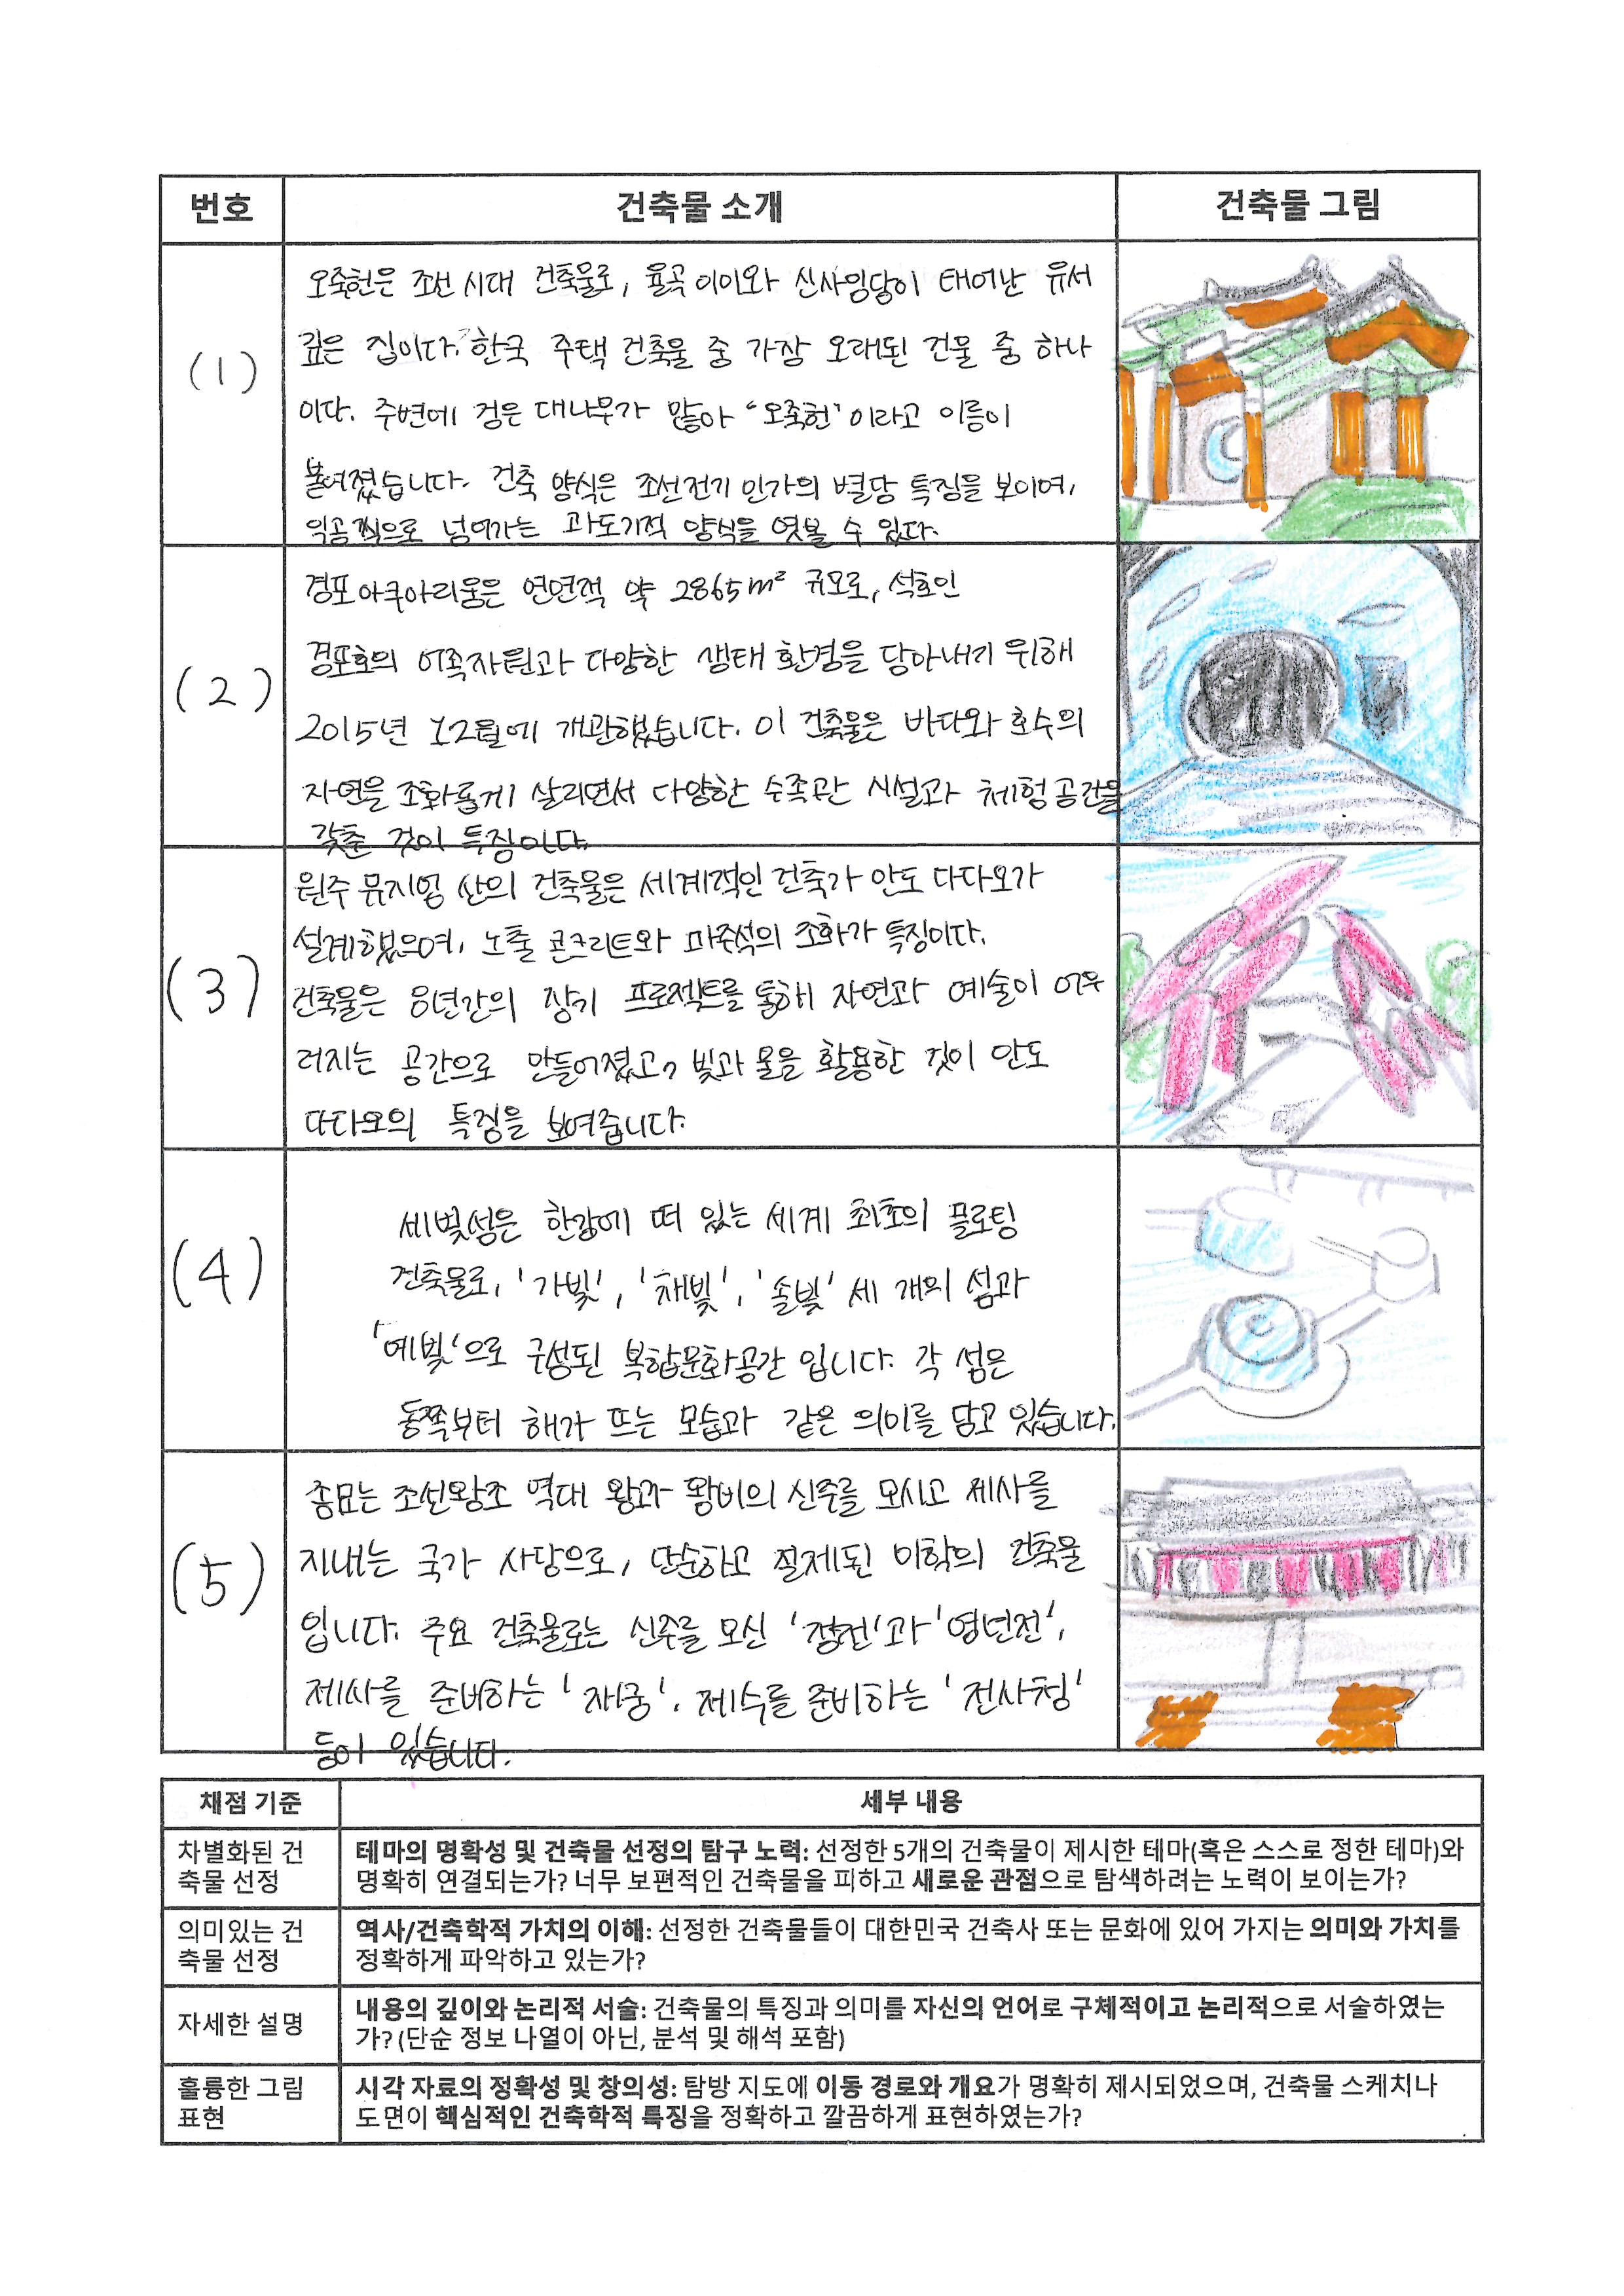 번호 건축물 소개 건축물 그림
(1)
오죽헌은 조선 시대 건축물로, 율곡 이이와 신사임당이 태어난 유서
깊은 집이다. 한국 주택 건축물 중 가장 오래된 건물 중 하나
이다. 주변에 검은 대나무가 많아 "오죽헌"이라고 이름이
붙여졌습니다. 건축 양식은 조선전기 민가의 별당 특징을 보이며,
익공식으로 넘어가는 과도기적 양식을 엿볼 수 있다.
(2)
경포아쿠아리움은 연면적 약 2865m² 규모로, 석호인
경포호의 어족자원과 다양한 생태 환경을 담아내기 위해
2015년 12월에 개관했습니다. 이 건축물은 바다와 호수의
자연을 조화롭게 살리면서 다양한 수족관 시설과 체험 공간을
갖춘 것이 특징이다.
(3)
원주 뮤지엄 산의 건축물은 세계적인 건축가 안도 다다오가
설계했으며, 노출 콘크리트와 파주석의 조화가 특징이다.
건축물은 8년간의 장기 프로젝트를 통해 자연과 예술이 어우
러지는 공간으로 만들어졌고, 빛과 물을 활용한 것이 안도
다다오의 특징을 보여줍니다.
(4)
세빛섬은 한강에 떠 있는 세계 최초의 플로팅
건축물로, '가빛', '채빛', '솔빛' 세 개의 섬과
'예빛'으로 구성된 복합문화공간 입니다. 각 섬은
동쪽부터 해가 뜨는 모습과 같은 의미를 담고 있습니다.
(5)
종묘는 조선왕조 역대 왕과 왕비의 신주를 모시고 제사를
지내는 국가 사당으로, 단순하고 절제된 미학의 건축물
입니다. 주요 건축물로는 신주를 모신 '정전'과 '영년전',
제사를 준비하는 '재궁', 제수를 준비하는 '전사청'
등이 있습니다.
채점 기준 세부 내용
차별화된 건
축물 선정
테마의 명확성 및 건축물 선정의 탐구 노력: 선정한 5개의 건축물이 제시한 테마(혹은 스스로 정한 테마)와
명확히 연결되는가? 너무 보편적인 건축물을 피하고 새로운 관점으로 탐색하려는 노력이 보이는가?
의미있는 건
축물 선정
역사/건축학적 가치의 이해: 선정한 건축물들이 대한민국 건축사 또는 문화에 있어 가지는 의미와 가치를
정확하게 파악하고 있는가?
자세한 설명
내용의 깊이와 논리적 서술: 건축물의 특징과 의미를 자신의 언어로 구체적이고 논리적으로 서술하였는
가? (단순 정보 나열이 아닌, 분석 및 해석 포함)
훌륭한 그림
표현
시각 자료의 정확성 및 창의성: 탐방 지도에 이동 경로와 개요가 명확히 제시되었으며, 건축물 스케치나
도면이 핵심적인 건축학적 특징을 정확하고 깔끔하게 표현하였는가?